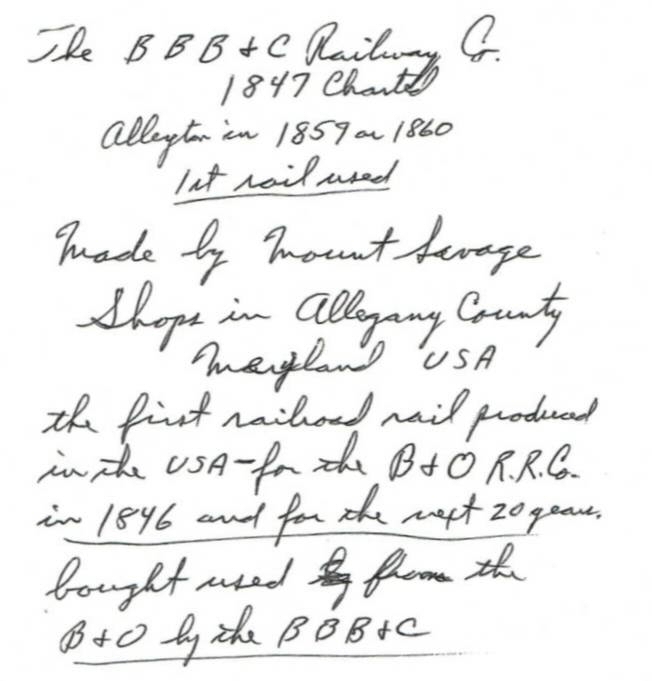 The B B B & C Railway Co.
1847 Charted
Alleyton in 1859 or 1860
1st rail used
Made by Mount Savage
Shops in Allegany County
Maryland USA
the first railroad rail produced
in the USA - for the B & O R.R. Co.
in 1846 and for the next 20 years.
bought used from the
B & O by the B B B & C